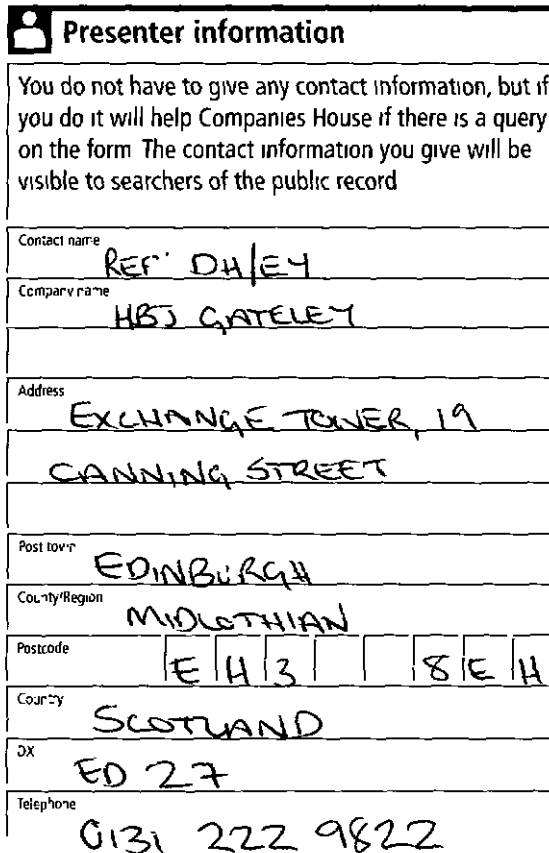 Presenter information
You do not have to give any contact information, but if
you do it will help Companies House if there is a query
on the form The contact information you give will be
visible to searchers of the public record
Contact name
REF: DH/EY
Company name
HBJ GATELEY
Address
EXCHANGE TOWER, 19
CANNING STREET
Post town
EDINBURGH
County/Region
MIDLOTHIAN
Postcode
EH3 8EH
Country
SCOTLAND
DX
ED 27
Telephone
0131 222 9822